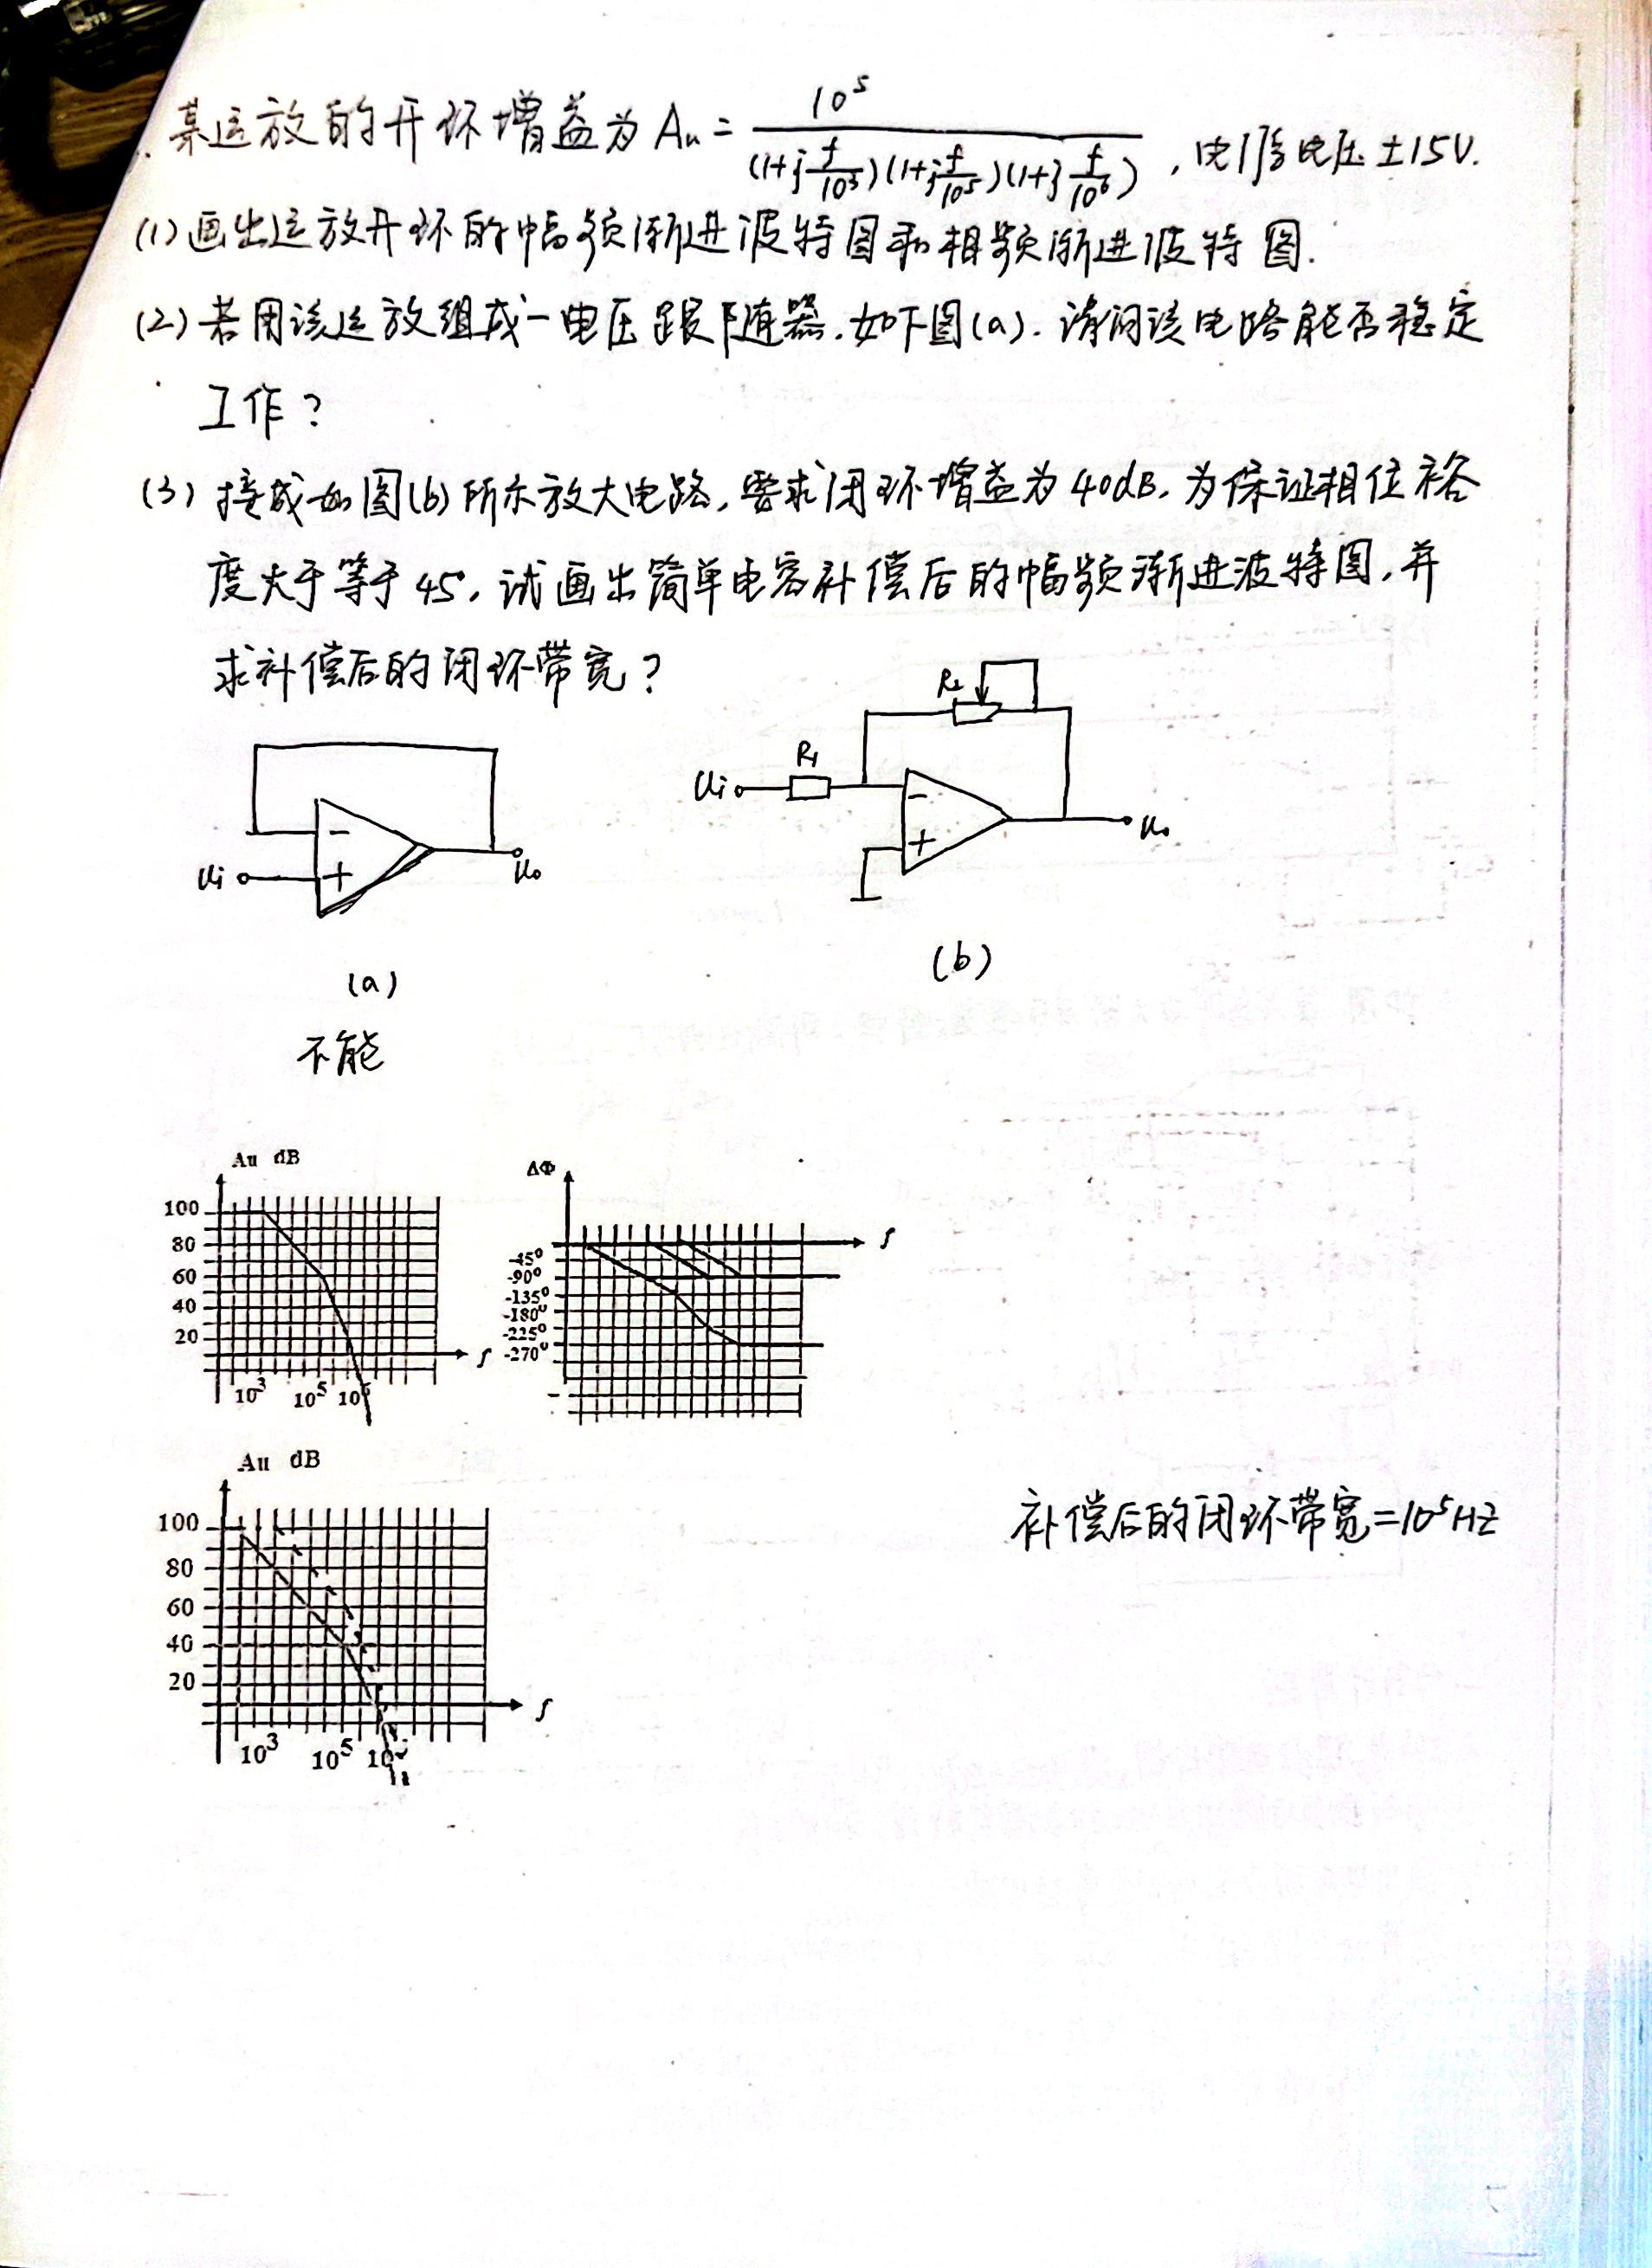 某运放的开环增益为 Au = 10^5 / (1+j f/10^3)(1+j f/10^5)(1+j f/10^6) , 电源电压 ±15V.
(1) 画出运放开环的幅频渐进波特图和相频渐进波特图.
(2) 若用该运放组成一电压跟随器.如下图(a). 请问该电路能否稳定
工作?
(3) 接成如图(b)所示放大电路,要求闭环增益为40dB,为保证相位裕
度大于等于45°,试画出简单电容补偿后的幅频渐进波特图,并
求补偿后的闭环带宽?
R2
R1
Ui
-
+
Uo
Ui
-
+
Uo
(a)
(b)
不能
Au dB
100
80
60
40
20
f
10^3 10^5 10^6
ΔΦ
f
-45°
-90°
-135°
-180°
-225°
-270°
Au dB
100
80
60
40
20
f
10^3 10^5
补偿后的闭环带宽=10^5HZ